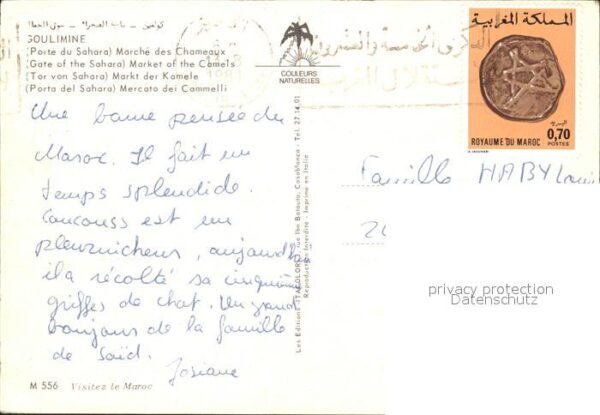 كولمين – باب الصحراء – سوق الجمال
GOULIMINE
(Porte du Sahara) Marché des Chameaux
(Gate of the Sahara) Market of the Camels
(Tor von Sahara) Markt der Kamele
(Porta del Sahara) Mercato dei Cammelli
COULEURS
NATURELLES
1981
المملكة المغربية
البريد
0,70
ROYAUME DU MAROC POSTES
Une bonne pensée du
Maroc. Il fait un
temps splendide.
Couscouss est un
pleurnicheur, aujourd'hui
il a récolté sa cinquième
griffes de chat. Un grand
bonjour de la famille
de Saïd.
Josiane
Famille HABY Louis
Les Editions ITALCOLOR, rue Ibn Batouta, Casablanca - Tel. 27.14.01
Reproduction Interdite - Imprimé en Italie
privacy protection
Datenschutz
M 556 Visitez le Maroc